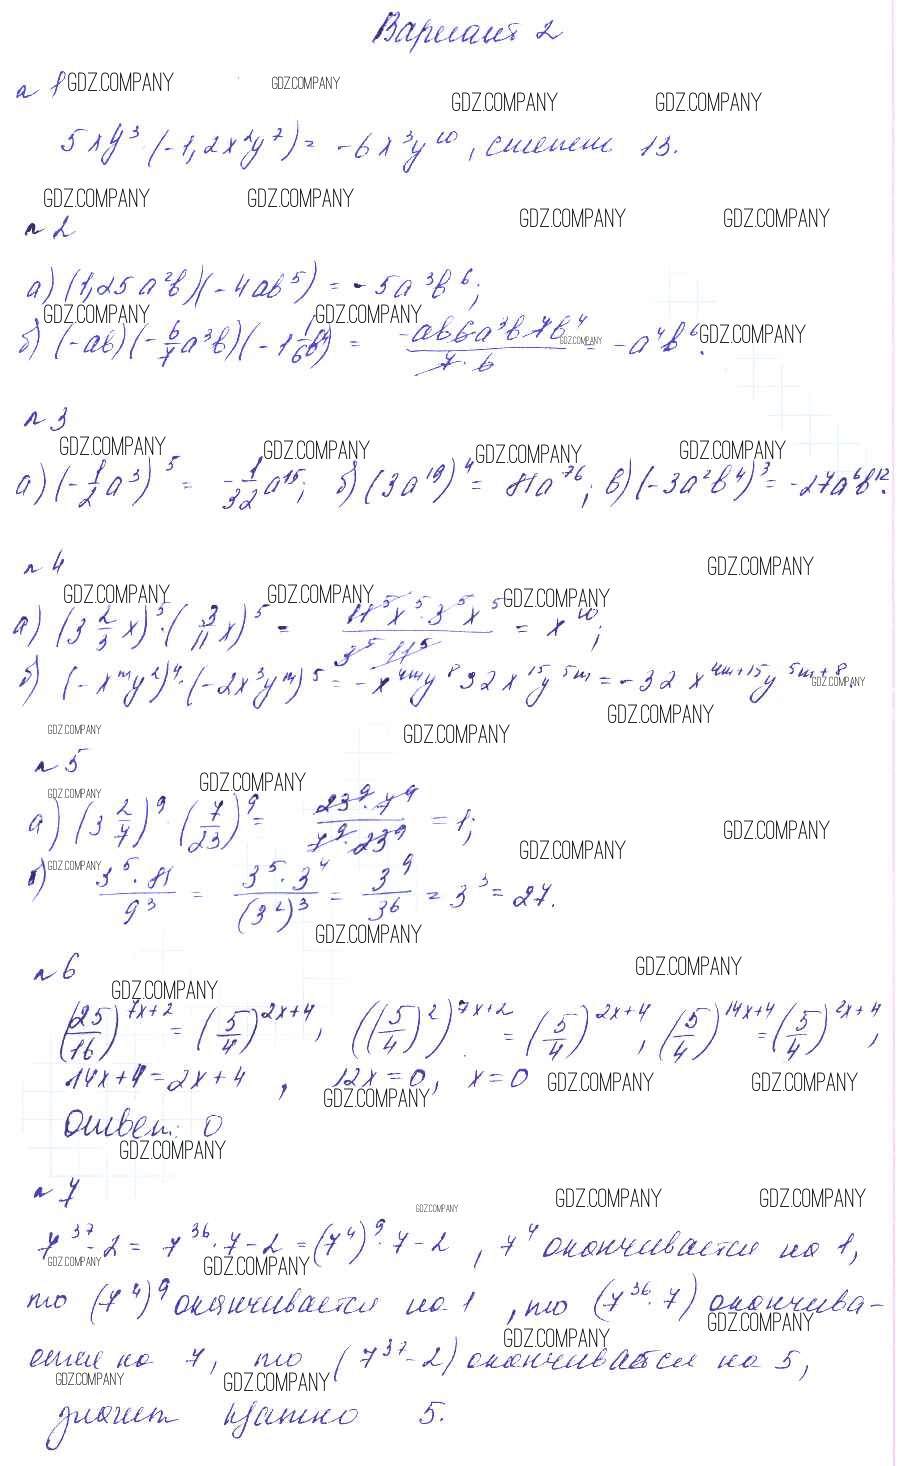 Вариант 2
№ 1 GDZ.COMPANY GDZ.COMPANY
GDZ.COMPANY GDZ.COMPANY
5xy³·(-1,2x²y⁷) = -6x³y¹⁰, степень 13.
GDZ.COMPANY GDZ.COMPANY
GDZ.COMPANY GDZ.COMPANY
№ 2
а) (1,25a²b)(-4ab⁵) = -5a³b⁶;
GDZ.COMPANY GDZ.COMPANY
GDZ.COMPANY GDZ.COMPANY
б) (-ab)(-6/7 a³b)(-1 1/6 b⁴) = -ab6a³b7b⁴/(7·6) = -a⁴b⁶.
№ 3
GDZ.COMPANY GDZ.COMPANY GDZ.COMPANY GDZ.COMPANY
а) (-1/2 a³)⁵ = -1/32 a¹⁵; б) (3a¹⁹)⁴ = 81a⁷⁶; в) (-3a²b⁴)³ = -27a⁶b¹².
№ 4
GDZ.COMPANY
GDZ.COMPANY GDZ.COMPANY GDZ.COMPANY
а) (3 2/3 x)⁵·(3/11 x)⁵ = 11⁵x⁵·3⁵x⁵/(3⁵·11⁵) = x¹⁰;
б) (-xᵐy²)⁴·(-2x³yᵐ)⁵ = -x⁴ᵐy⁸32x¹⁵y⁵ᵐ = -32x⁴ᵐ⁺¹⁵y⁵ᵐ⁺⁸.
GDZ.COMPANY
GDZ.COMPANY
GDZ.COMPANY GDZ.COMPANY
№ 5
GDZ.COMPANY GDZ.COMPANY
а) (3 2/7)⁹·(7/23)⁹ = 23⁹·7⁹/(7⁹·23⁹) = 1;
GDZ.COMPANY
GDZ.COMPANY GDZ.COMPANY
б) 3⁵·81/9³ = 3⁵·3⁴/(3²)³ = 3⁹/3⁶ = 3³ = 27.
GDZ.COMPANY
№ 6
GDZ.COMPANY
GDZ.COMPANY
(25/16)⁷ˣ⁺² = (5/4)²ˣ⁺⁴, ((5/4)²)⁷ˣ⁺² = (5/4)²ˣ⁺⁴, (5/4)¹⁴ˣ⁺⁴ = (5/4)²ˣ⁺⁴,
14x+4=2x+4, 12x=0, x=0
GDZ.COMPANY GDZ.COMPANY GDZ.COMPANY
Ответ: 0
GDZ.COMPANY
№ 7
GDZ.COMPANY GDZ.COMPANY
GDZ.COMPANY
7³⁷-2 = 7³⁶·7-2 = (7⁴)⁹·7-2, 7⁴ оканчивается на 1,
GDZ.COMPANY GDZ.COMPANY
то (7⁴)⁹ оканчивается на 1, то (7³⁶·7) оканчива-
GDZ.COMPANY
GDZ.COMPANY
ется на 7, то (7³⁷-2) оканчивается на 5,
GDZ.COMPANY GDZ.COMPANY
значит кратно 5.